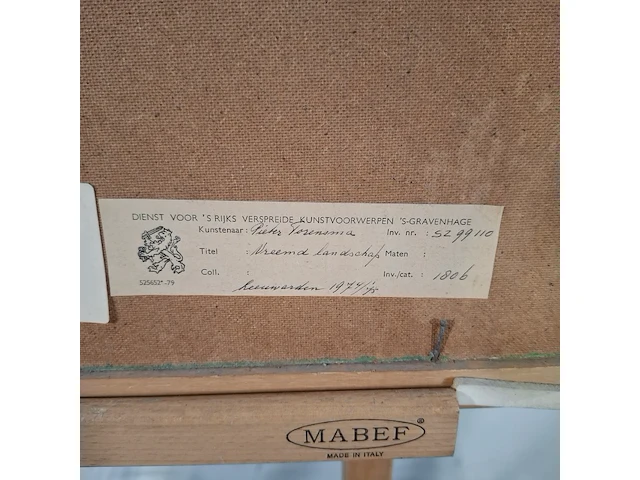 DIENST VOOR 'S RIJKS VERSPREIDE KUNSTVOORWERPEN 'S-GRAVENHAGE
Kunstenaar: Pieter Torensma Inv. nr. : SZ 99110
Titel : Vreemd landschap Maten :
Coll. : Inv./cat. : 1806
525652*-79 Leeuwarden 1974/'75
MABEF®
MADE IN ITALY